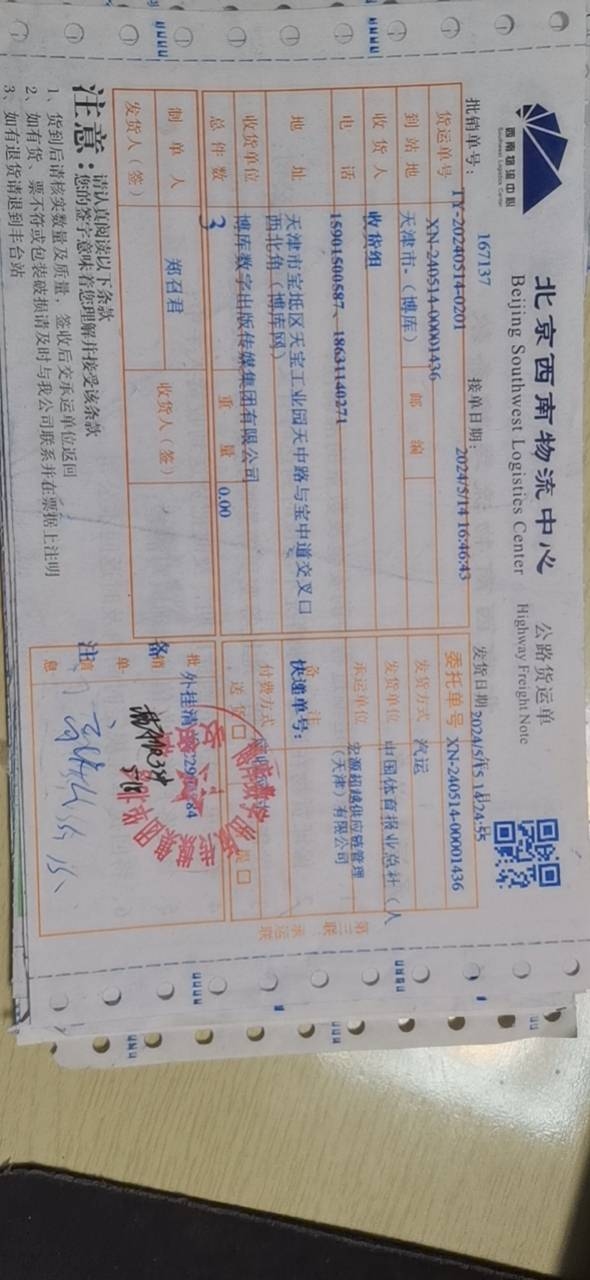 西南物流中心
Southwest Logistics Center
北京西南物流中心
Beijing Southwest Logistics Center
公路货运单
Highway Freight Note
167137
批销单号：TY-20240514-0201
接单日期：2024/5/14 16:46:43
发货日期
货运单号 XN-240514-00001436
委托单号 XN-240514-00001436
到站地 天津市-（博库） 邮编
发货方式 汽运
收货人 收货组
发货单位 中国体育报业总社（人
电话 15901500587、18631140271
承运单位 宏源超越供应链管理（天津）有限公司
地址 天津市宝坻区天宝工业园天中路与宝中道交叉口
西北角（博库网）
备注
快递单号：
收货单位 博库数字出版传媒集团有限公司
付费方式
总件数 3 重量 0.00
送货 口
制单人 郑召君
收货人（签）
发货人（签）
批销单
外挂清
备注
信息
第三联
承运联
注意：
请认真阅读以下条款
您的签字意味着您理解并接受该条款
1、货到后请核实数量及质量，签收后交承运单位返回
2、如有货、票不符或包装破损请及时与我公司联系并在票据上注明
3、如有退货请退到丰台站